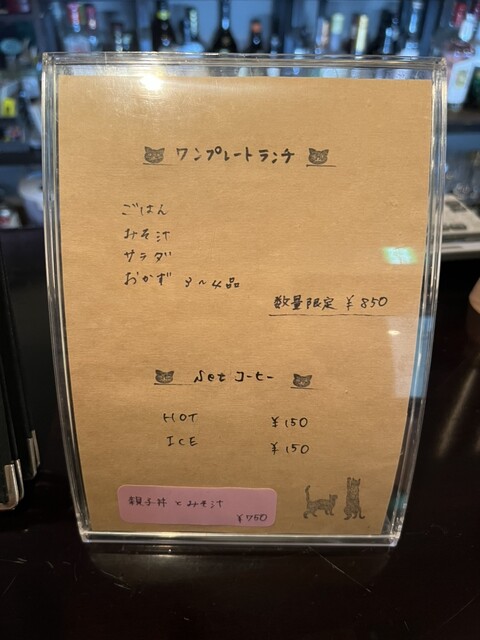 ワンプレートランチ
ごはん
みそ汁
サラダ
おかず 3〜4品
数量限定 ¥850
Set コーヒー
HOT ¥150
ICE ¥150
親子丼とみそ汁
¥750